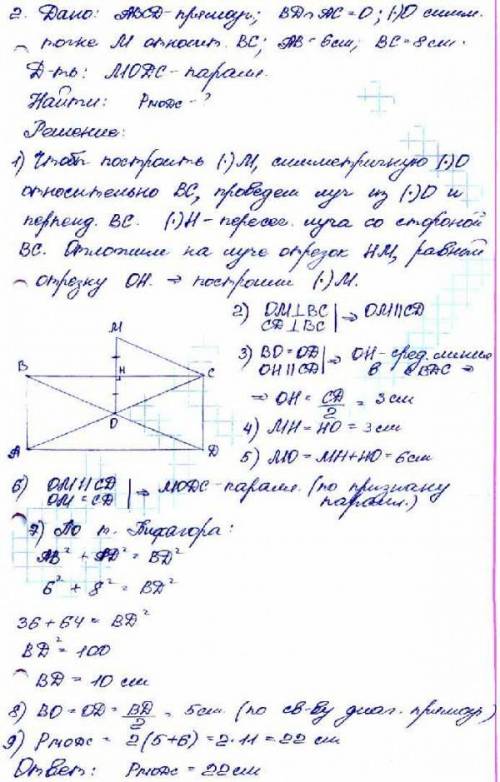 2. Дано: ABCD - прямоуг; BD∩AC=O; (·)O симм.
точке M относит. BC; AB=6см; BC=8см.
Д-ть: MODC - паралл.
Найти: PMODC - ?
Решение:
1) Чтобы построить (·)M, симметричную (·)O
относительно BC, проведем луч из (·)O и
перпенд. BC. (·)H - пересеч. луча со стороной
BC. Отложим на луче отрезок HM, равный
отрезку OH. ⇒ построили (·)M.
2) OM⊥BC | ⇒ OM||CD
CD⊥BC |
3) BO=OD | ⇒ OH - сред. линия
OH||CD | в △BDC ⇒
⇒ OH = CD/2 = 3см
4) MH=HO=3см
5) MO=MH+HO=6см
M
B H C
O
A D
6) OM||CD | ⇒ MODC - паралл. (по признаку
OM=CD | паралл.)
7) По т. Пифагора:
AB² + AD² = BD²
6² + 8² = BD²
36 + 64 = BD²
BD² = 100
BD = 10 см
8) BO = OD = BD/2 = 5см. (по св-ву диаг. прямоуг)
9) PMODC = 2(5+6) = 2·11 = 22см
Ответ: PMODC = 22см